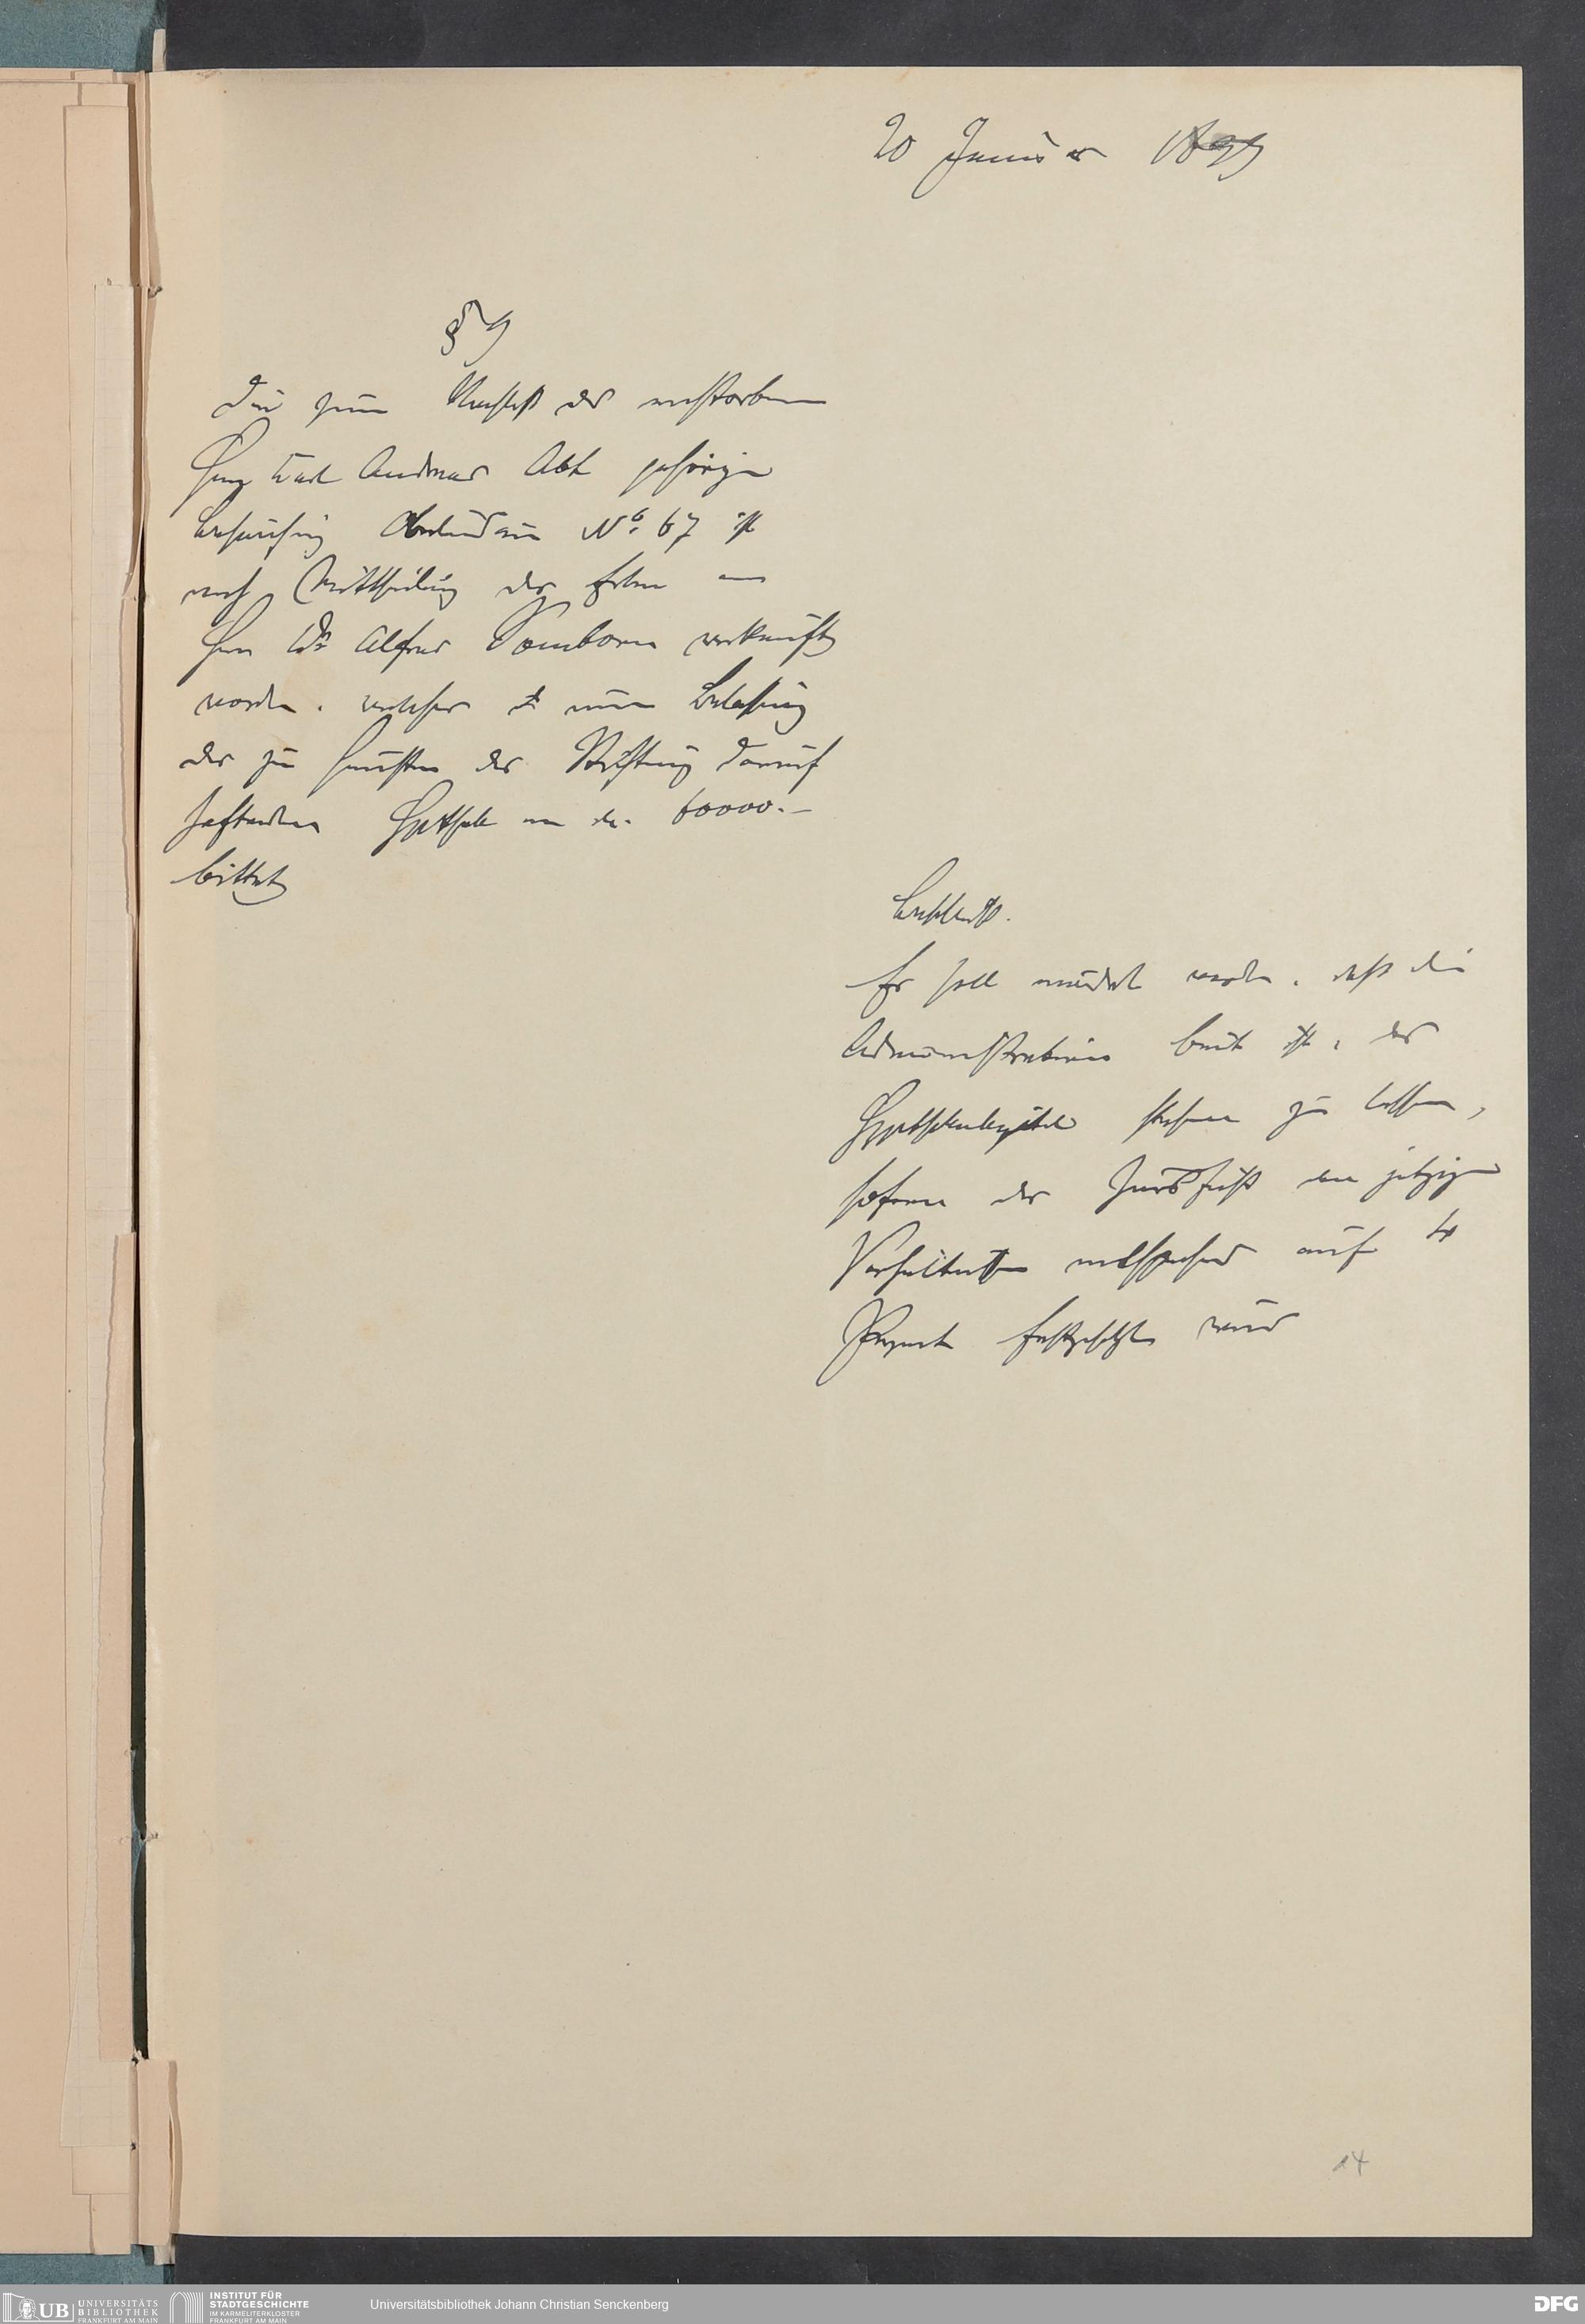 20 Januar 1899
§ 9
Die zum Nachlaß des verstorbenen
Herrn Carl Andreas Abt gehörige
Behausung Oberlindau No. 67 ist
nach Mittheilung der Erben an
Herrn Dr Alfred Homborn verkauft
worden, welcher um Belassung
der zu Gunsten der Stiftung darauf
haftenden Hypothek von M. 60000.–
bittet
Beschluß.
Es soll erwidert werden, daß die
Administration bereit ist, das
Hypothekenkapital stehen zu lassen,
sofern der Zinsfuß den jetzigen
Verhältnissen entsprechend auf 4
Prozent festgesetzt wird
14
UB UNIVERSITÄTS
BIBLIOTHEK
FRANKFURT AM MAIN
INSTITUT FÜR
STADTGESCHICHTE
IM KARMELITERKLOSTER
FRANKFURT AM MAIN
Universitätsbibliothek Johann Christian Senckenberg
DFG